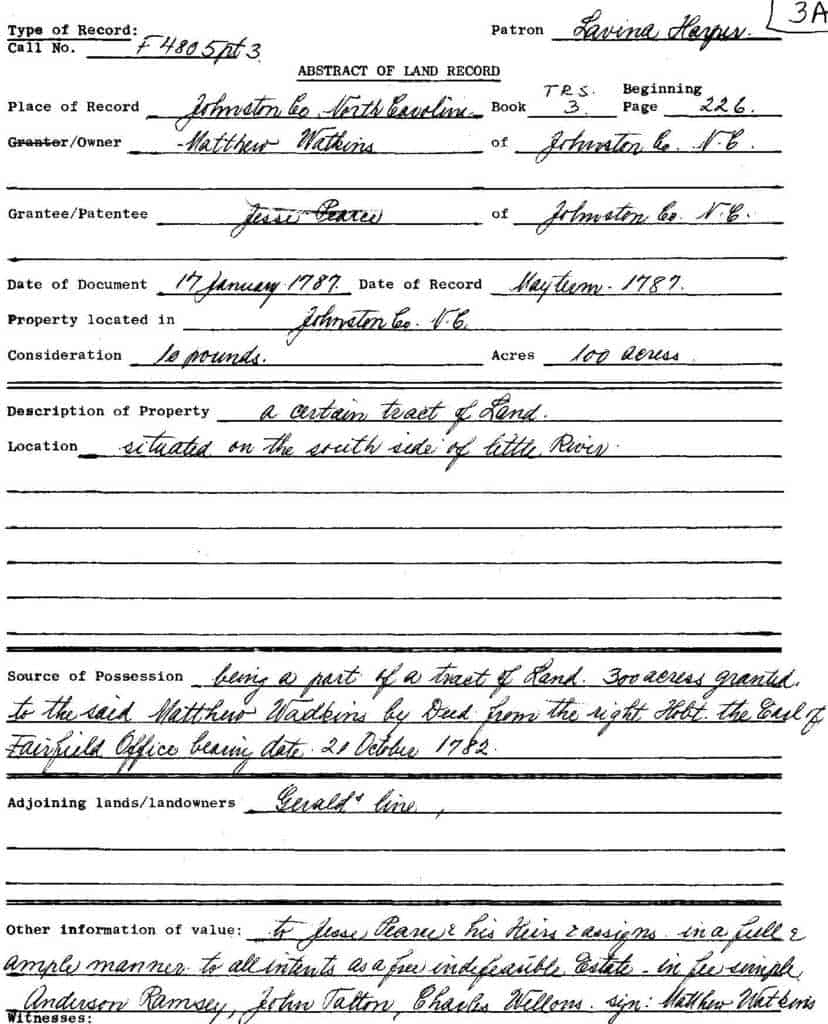 3A
Type of Record: Patron Lavina Harper.
Call No. F 480 5 pt 3
ABSTRACT OF LAND RECORD
Place of Record Johnston Co, North Carolina Book T.R.S. 3. Beginning Page 226.
Granter/Owner Matthew Watkins of Johnston Co. N.C.
Grantee/Patentee Jesse Pearce of Johnston Co. N.C.
Date of Document 17 January 1787. Date of Record May term - 1787.
Property located in Johnston Co. N.C.
Consideration 10 pounds. Acres 100 acress
Description of Property a certain tract of Land.
Location situated on the south side of little River.
Source of Possession being a part of a tract of Land. 300 acress granted.
to the said Matthew Wadkins by Deed from the right Hobt. the Earl of
Fairfield Office bearing date 20 October 1782.
Adjoining lands/landowners Gerald's line,
Other information of value: to Jesse Pearce & his Heirs & assigns in a full &
ample manner to all intents as a free indefeasible Estate - in fee simple
Anderson Ramsey, John Talton, Charles Wellons. sign: Matthew Watkins
Witnesses: